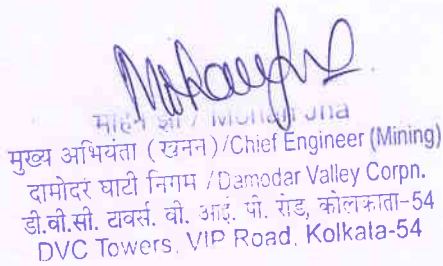 मोहन झा / Mohan Jha
मुख्य अभियंता (खनन)/Chief Engineer (Mining)
दामोदर घाटी निगम /Damodar Valley Corpn.
डी.वी.सी. टावर्स. वी. आई. पी. रोड, कोलकाता-54
DVC Towers, VIP Road, Kolkata-54